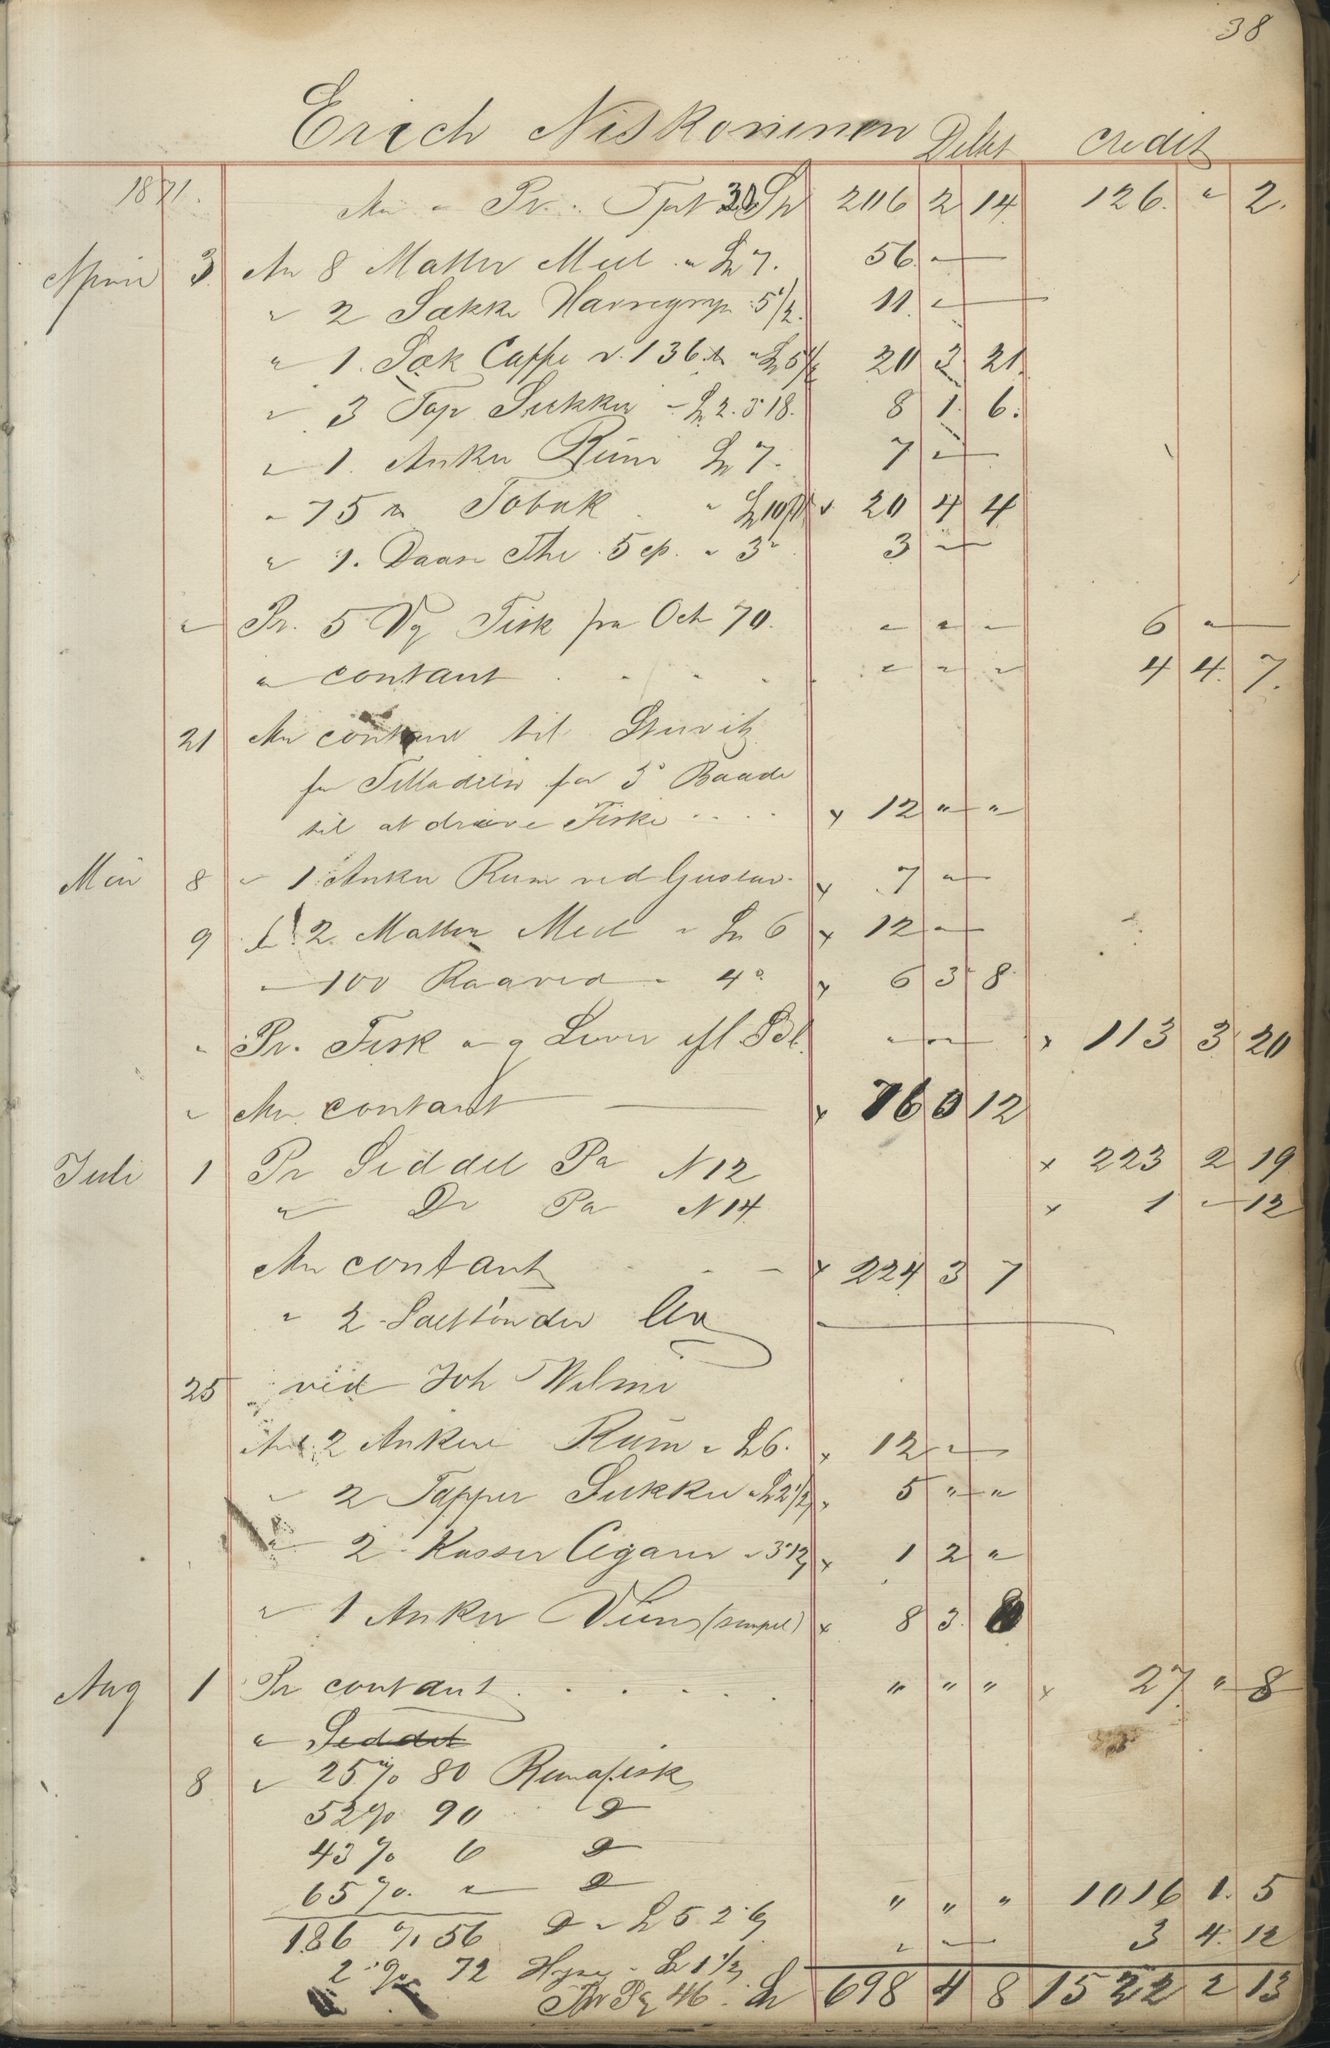 38
Erich Niskoninen Debet credit
1871. An " Pr. " Tprt 30 Sp 206 2 14 126. " 2.
April 3 An 8 Matter Meel " Sp 7. 56 "
" 2 Sække Havregryn 5 1/2. 11 "
" 1. Sæk Caffe v. 136 tt " 20 3 21.
" 3 Top Sukker " Sp 2. 3 18. 8 1. 6.
" 1. Anker Rum Sp 7. 7 "
" 75 tt Tobak " 20 4 4
" 1. Daase The 5 " 3 " 3 "
" Pr. 5 Vg Fisk fra Oct 70. " " " 6 "
" contant . . . . " " " 4 4. 7.
21 An contant til
for Tilladelse for 3 Baade
til at drive Fiske . . . . x 12 " "
Mai 8 " 1 Anker Rum ved Gustav. x 7 "
9 2. Matter Meel " Sp 6 x 12 "
" 100 Raaved " 4 x 6 3 8
" Pr. Fisk og Lever efl " " x 113 3 20
" An contant x 76 0 12
Juli 1 Pr Seddel Pa N 12 x 223 2 19
" Do Pa N 14. x 1 " 12
An contant . . x 224 3 7
" 2 Salttønder
25 ved Joh Wilmi
An 2 Ankere Rum " Sp 6. x 12 "
" 2 Topper Sukker " Sp 2 1/2 x 5 " "
" 2 Kasser Cigarer " 3 12 x 1 2 "
" 1 Anker Viin (simpel) x 8 3
Aug 1 Pr contant . . . . . " " " x 27. " 8
" Seddel
8 " 25 % 80 Rundfisk
52 % 90 Do
43 % 6 Do
65 % " Do " " " 1016 1. 5
186 % 56 Do " Sp 5. 2. 6 " " 3 4. 12
2 % 72 Hyse " Sp 1 1/2
Tr Pg 46. Sp 698 4 8 1522 2 13